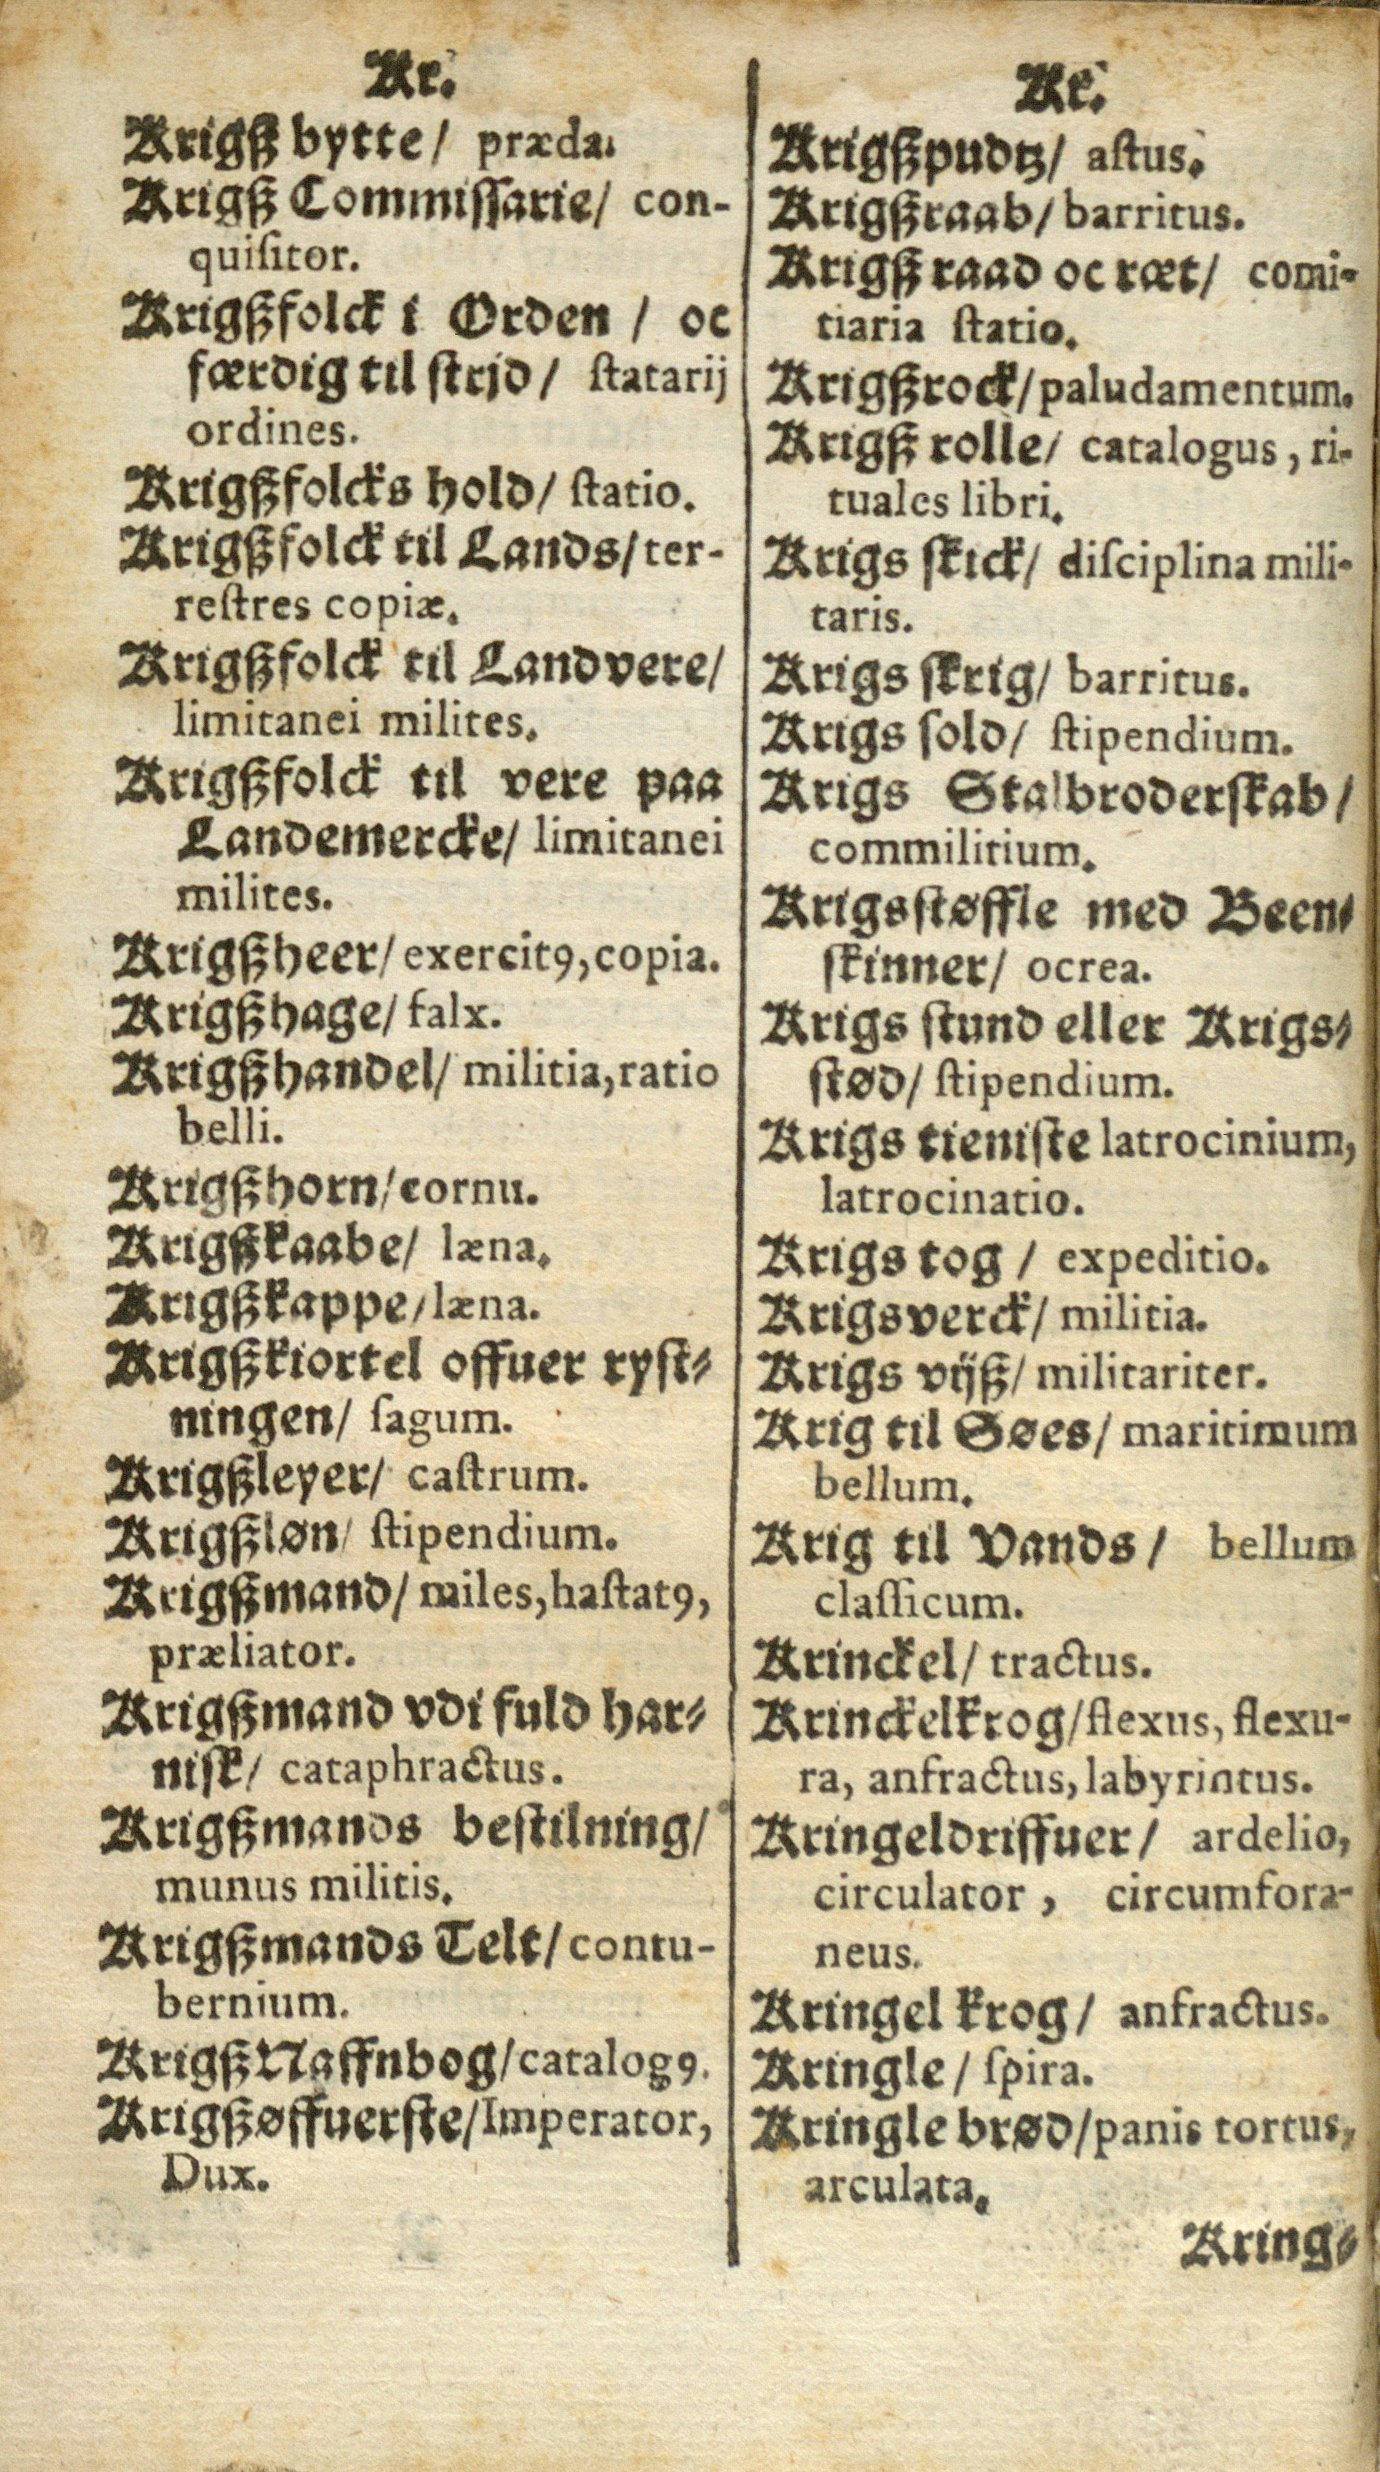 Kr.
Krigß bytte/ præda.
Krigß Commiſſarie/ con-
quiſitor.
Krigßfolck i Orden / oc
færdig til ſtrjd / ſtatarij
ordines.
Krigßfolcks hold/ ſtatio.
Krigßfolck til Lands/ ter-
reſtres copiæ.
Krigßfolck til Landvere/
limitanei milites.
Krigßfolck til vere paa
Landemercke/ limitanei
milites.
Krigßheer/ exercitꝰ, copia.
Krigßhage/ falx.
Krigßhandel/ militia, ratio
belli.
Krigßhorn/ cornu.
Krigßkaabe/ læna.
Krigßkappe/ læna.
Krigßkiortel offuer ryſt-
ningen/ ſagum.
Krigßleyer/ caſtrum.
Krigßløn/ ſtipendium.
Krigßmand/ miles, haſtatꝰ,
præliator.
Krigßmand vdi fuld har-
niſk/ cataphractus.
Krigßmands beſtilning/
munus militis.
Krigßmands Telt/ contu-
bernium.
KrigßNaffnbog/ catalogꝰ.
Krigßøffuerſte/ Imperator,
Dux.
Kr.
Krigßpudtz/ aſtus.
Krigßraab/ barritus.
Krigß raad oc ræt/ comi-
tiaria ſtatio.
Krigßrock/ paludamentum.
Krigß rolle/ catalogus, ri-
tuales libri.
Krigs ſkick/ diſciplina mili-
taris.
Krigs ſkrig/ barritus.
Krigs ſold/ ſtipendium.
Krigs Stalbroderſkab/
commilitium.
Krigsſtøffle med Been-
ſkinner/ ocrea.
Krigs ſtund eller Krigs-
ſtød/ ſtipendium.
Krigs tieniſte latrocinium,
latrocinatio.
Krigs tog / expeditio.
Krigsverck/ militia.
Krigs vijß/ militariter.
Krig til Søes/ maritimum
bellum.
Krig til Vands / bellum
claſſicum.
Krinckel/ tractus.
Krinckelkrog/ flexus, flexu-
ra, anfractus, labyrintus.
Kringeldriffuer/ ardelio,
circulator, circumfora-
neus.
Kringel krog/ anfractus.
Kringle / ſpira.
Kringle brød/ panis tortus,
arculata.
Kring-